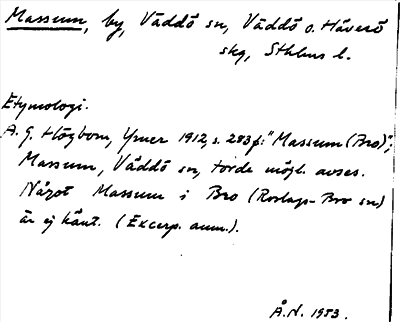 Massum, by, Väddö sn, Väddö o. Häverö
skg, Sthlms l.
Etymologi.
A. G. Högbom, Ymer 1912, s. 283 f: "Massum (Bro)";
Massum, Väddö sn, torde möjl. avses.
Något Massum i Bro (Roslags-Bro sn)
är ej känt. (Excerp. anm.).
Å.N. 1953.